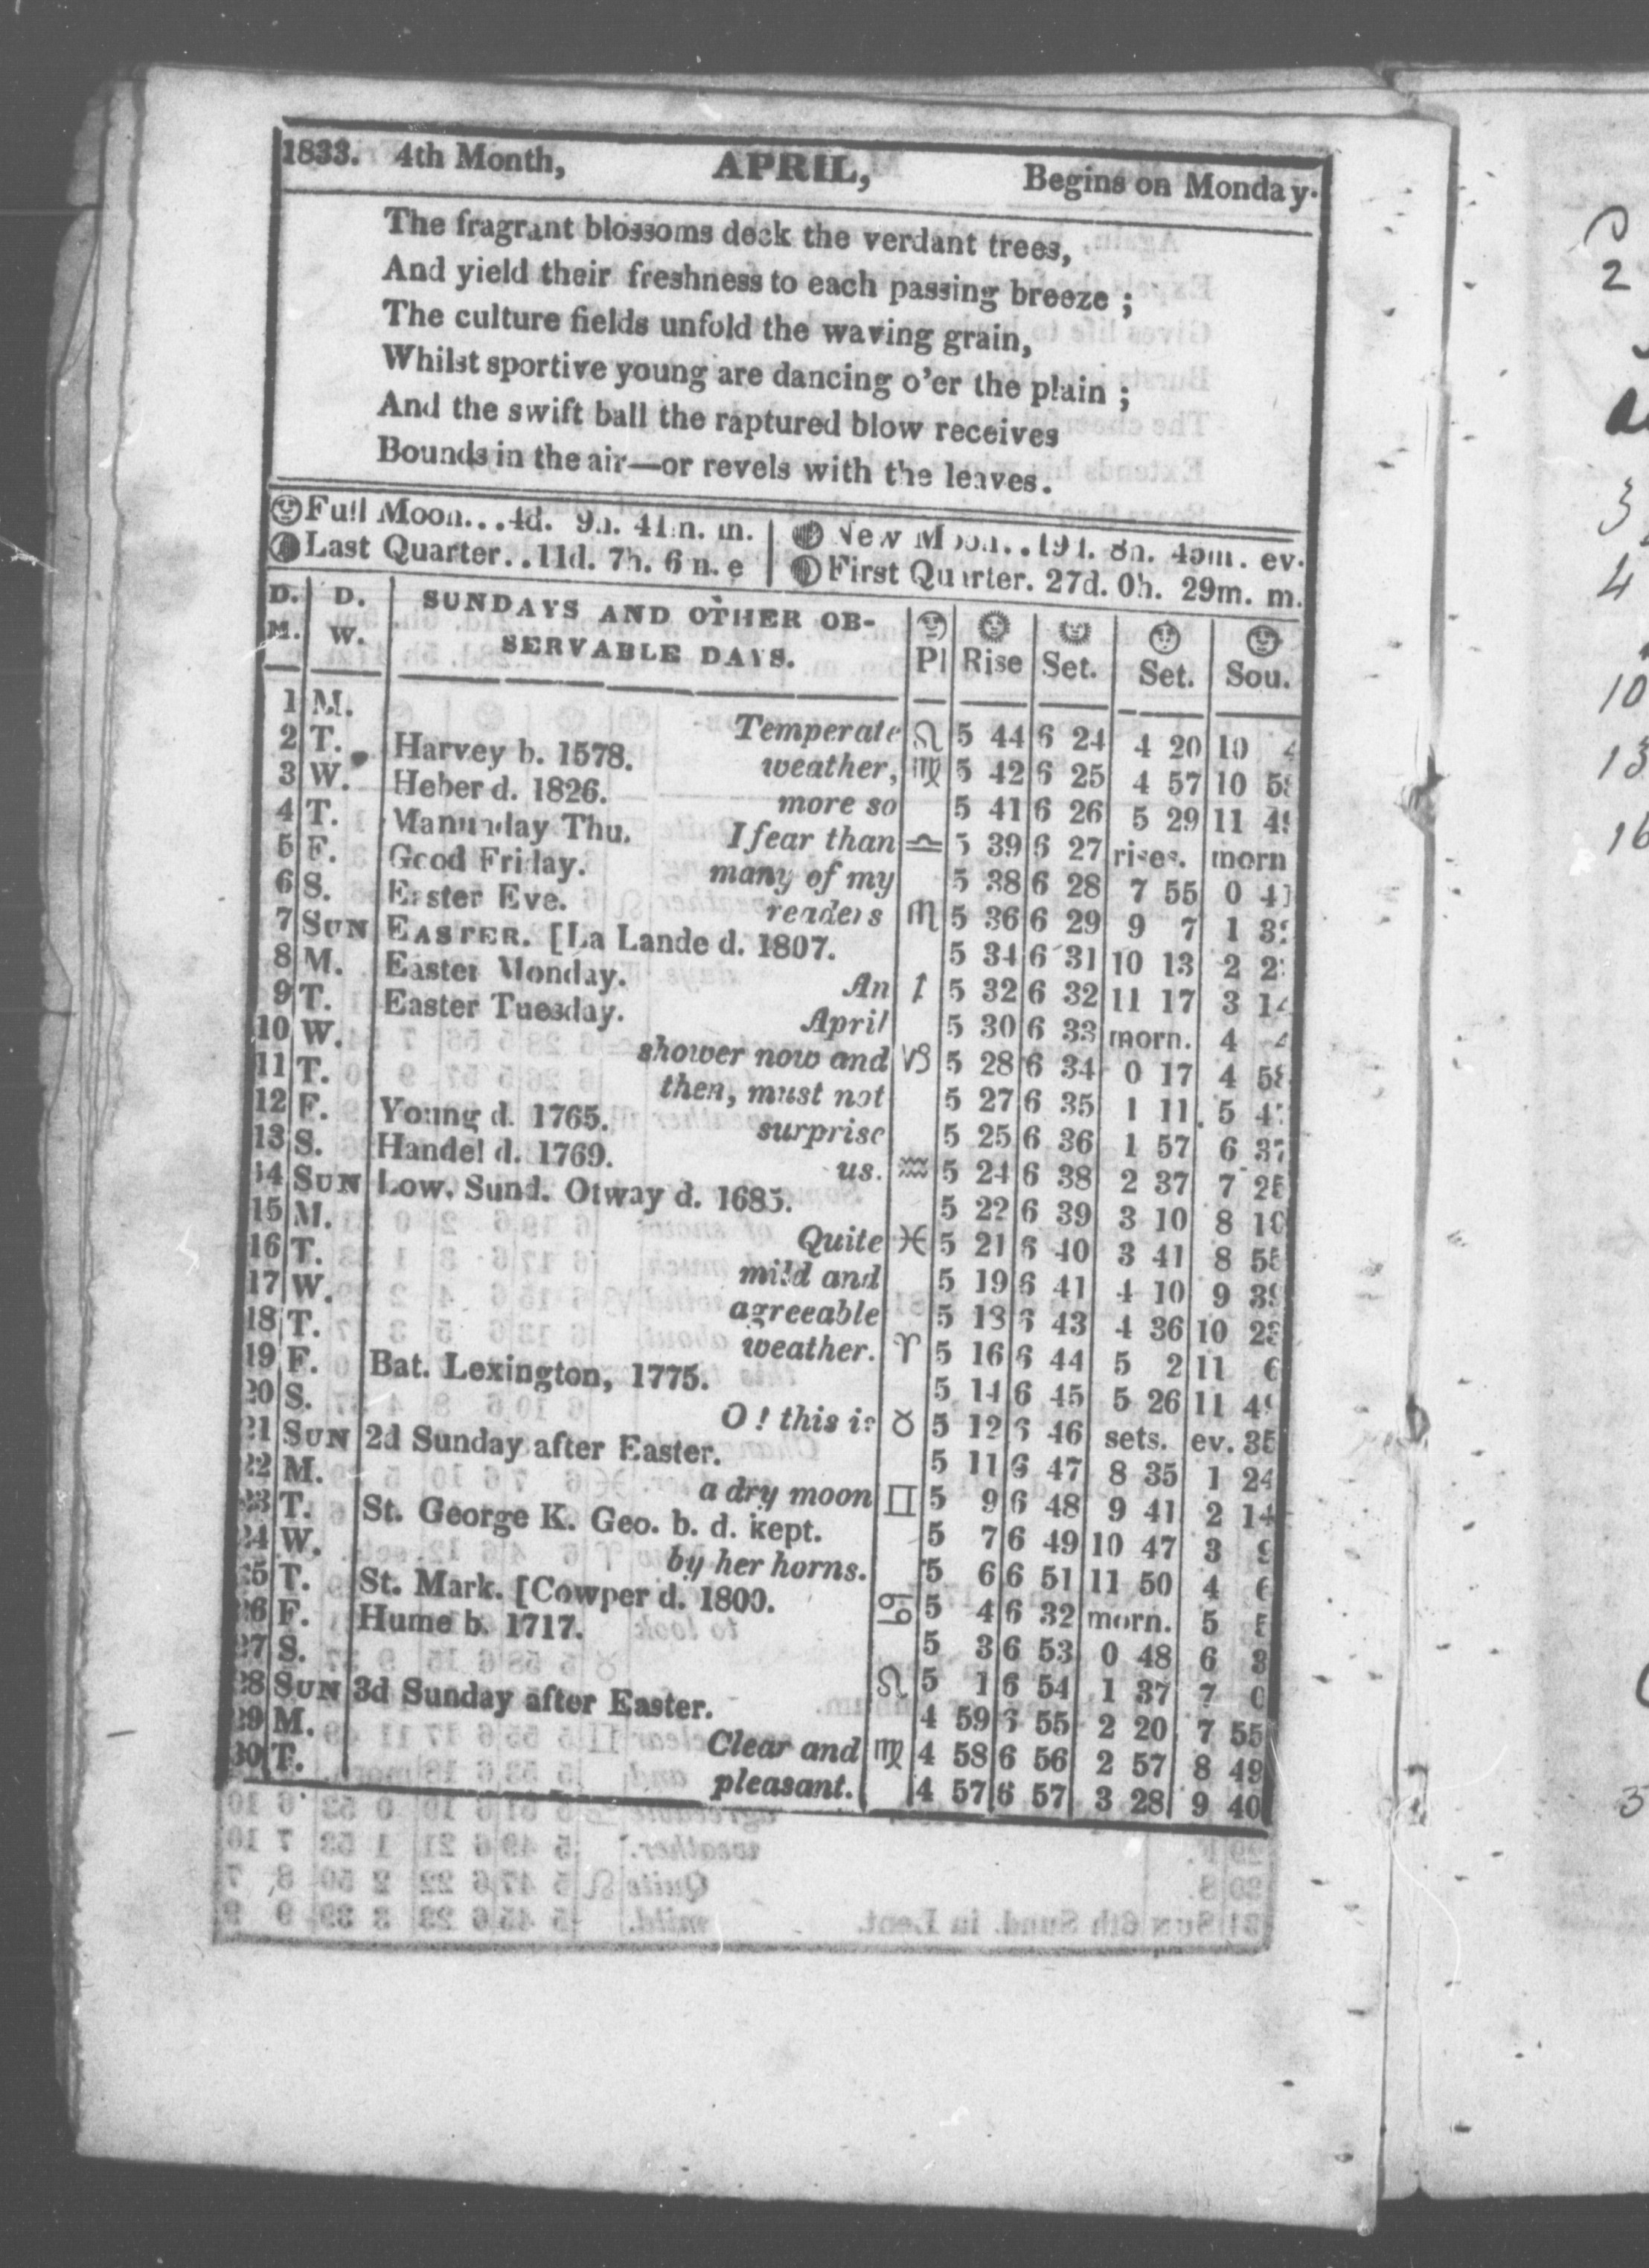 1833. 4th Month, APRIL, Begins on Monday.
The fragrant blossoms deck the verdant trees,
And yield their freshness to each passing breeze ;
The culture fields unfold the waving grain,
Whilst sportive young are dancing o'er the plain ;
And the swift ball the raptured blow receives
Bounds in the air—or revels with the leaves.
Full Moon...4d. 9h. 41m. m. New Moon..19d. 8h. 45m. ev.
Last Quarter..11d. 7h. 6m. e First Quarter. 27d. 0h. 29m. m.
D. D. SUNDAYS AND OTHER OB-
M. W. SERVABLE DAYS. Pl Rise Set. Set. Sou.
1 M. Temperate ♌ 5 44 6 24 4 20 10
2 T. Harvey b. 1578. weather, ♍ 5 42 6 25 4 57 10
3 W. Heber d. 1826. more so 5 41 6 26 5 29 11
4 T. Manunday Thu. I fear than ♎ 5 39 6 27 rises. morn
5 F. Good Friday. many of my 5 38 6 28 7 55 0
6 S. Easter Eve. readers ♏ 5 36 6 29 9 7 1
7 SUN EASTER. [La Lande d. 1807. 5 34 6 31 10 13 2
8 M. Easter Monday. An ♐ 5 32 6 32 11 17 3 14
9 T. Easter Tuesday. April 5 30 6 33 morn. 4
10 W. shower now and ♑ 5 28 6 34 0 17 4 58
11 T. then, must not 5 27 6 35 1 11 5
12 F. Young d. 1765. surprise 5 25 6 36 1 57 6 37
13 S. Handel d. 1769. us. ♒ 5 24 6 38 2 37 7
14 SUN Low. Sund. Otway d. 1685. 5 22 6 39 3 10 8 10
15 M. Quite ♓ 5 21 6 40 3 41 8 55
16 T. mild and 5 19 6 41 4 10 9 39
17 W. agreeable 5 18 6 43 4 36 10 23
18 T. weather. ♈ 5 16 6 44 5 2 11 6
19 F. Bat. Lexington, 1775. 5 14 6 45 5 26 11 49
20 S. O ! this is ♉ 5 12 6 46 sets. ev. 35
21 SUN 2d Sunday after Easter. 5 11 6 47 8 35 1 24
22 M. a dry moon ♊ 5 9 6 48 9 41 2 14
23 T. St. George K. Geo. b. d. kept. 5 7 6 49 10 47 3 9
24 W. by her horns. 5 6 6 51 11 50 4 6
25 T. St. Mark. [Cowper d. 1800. ♋ 5 4 6 32 morn. 5 5
26 F. Hume b. 1717. 5 3 6 53 0 48 6 3
27 S. ♌ 5 1 6 54 1 37 7 0
28 SUN 3d Sunday after Easter. 4 59 6 55 2 20 7 55
29 M. Clear and ♍ 4 58 6 56 2 57 8 49
30 T. pleasant. 4 57 6 57 3 28 9 40
2
3
4
10
13
16
3